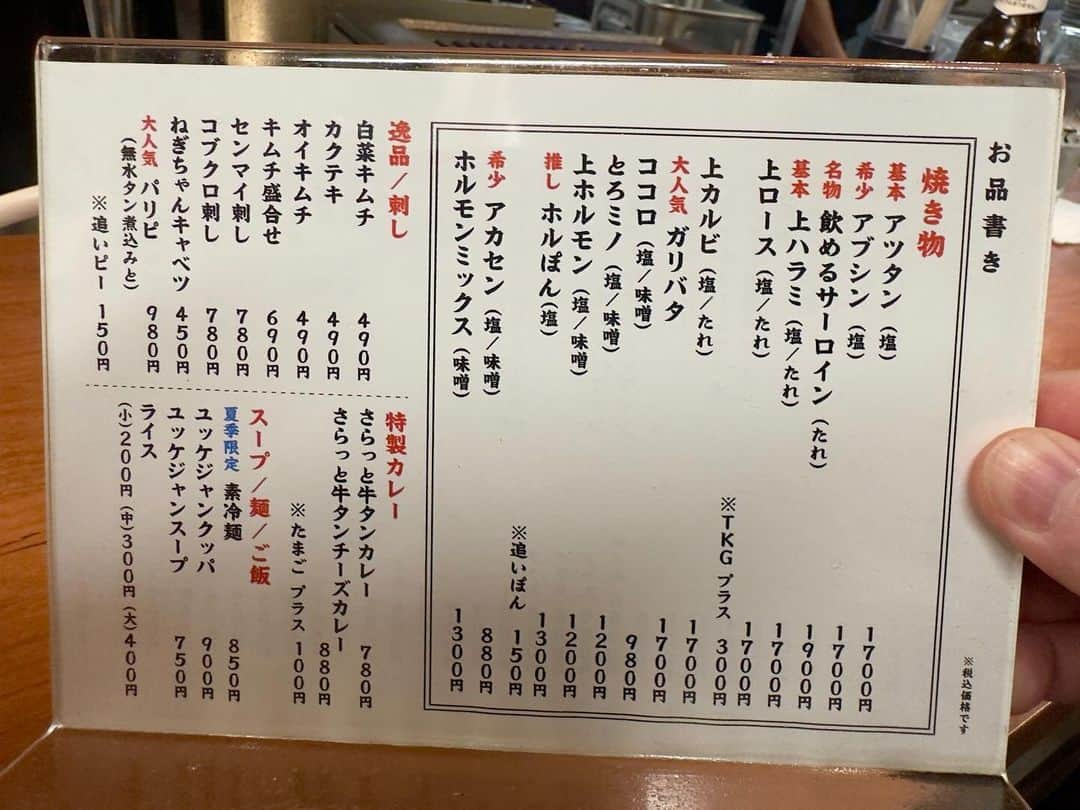 お品書き
※税込価格です
焼き物
基本 アツタン（塩） 1700円
希少 アブシン（塩） 1700円
名物 飲めるサーロイン（たれ） 1900円
基本 上ハラミ（塩/たれ） 1700円
上ロース（塩/たれ） 1700円
※TKG プラス 300円
上カルビ（塩/たれ） 1700円
大人気 ガリバタ 1700円
ココロ（塩/味噌） 980円
とろミノ（塩/味噌） 1200円
上ホルモン（塩/味噌） 1200円
推し ホルぽん（塩） 1300円
※追いぽん 150円
希少 アカセン（塩/味噌） 880円
ホルモンミックス（味噌） 1300円
逸品/刺し
白菜キムチ 490円
カクテキ 490円
オイキムチ 490円
キムチ盛合せ 690円
センマイ刺し 780円
コブクロ刺し 780円
ねぎちゃんキャベツ 450円
大人気 パリピ 980円
（無水タン煮込みと）
※追いピー 150円
特製カレー
さらっと牛タンカレー 780円
さらっと牛タンチーズカレー 880円
※たまご プラス 100円
スープ/麺/ご飯
夏季限定 素冷麺 850円
ユッケジャンクッパ 900円
ユッケジャンスープ 750円
ライス
（小）200円（中）300円（大）400円